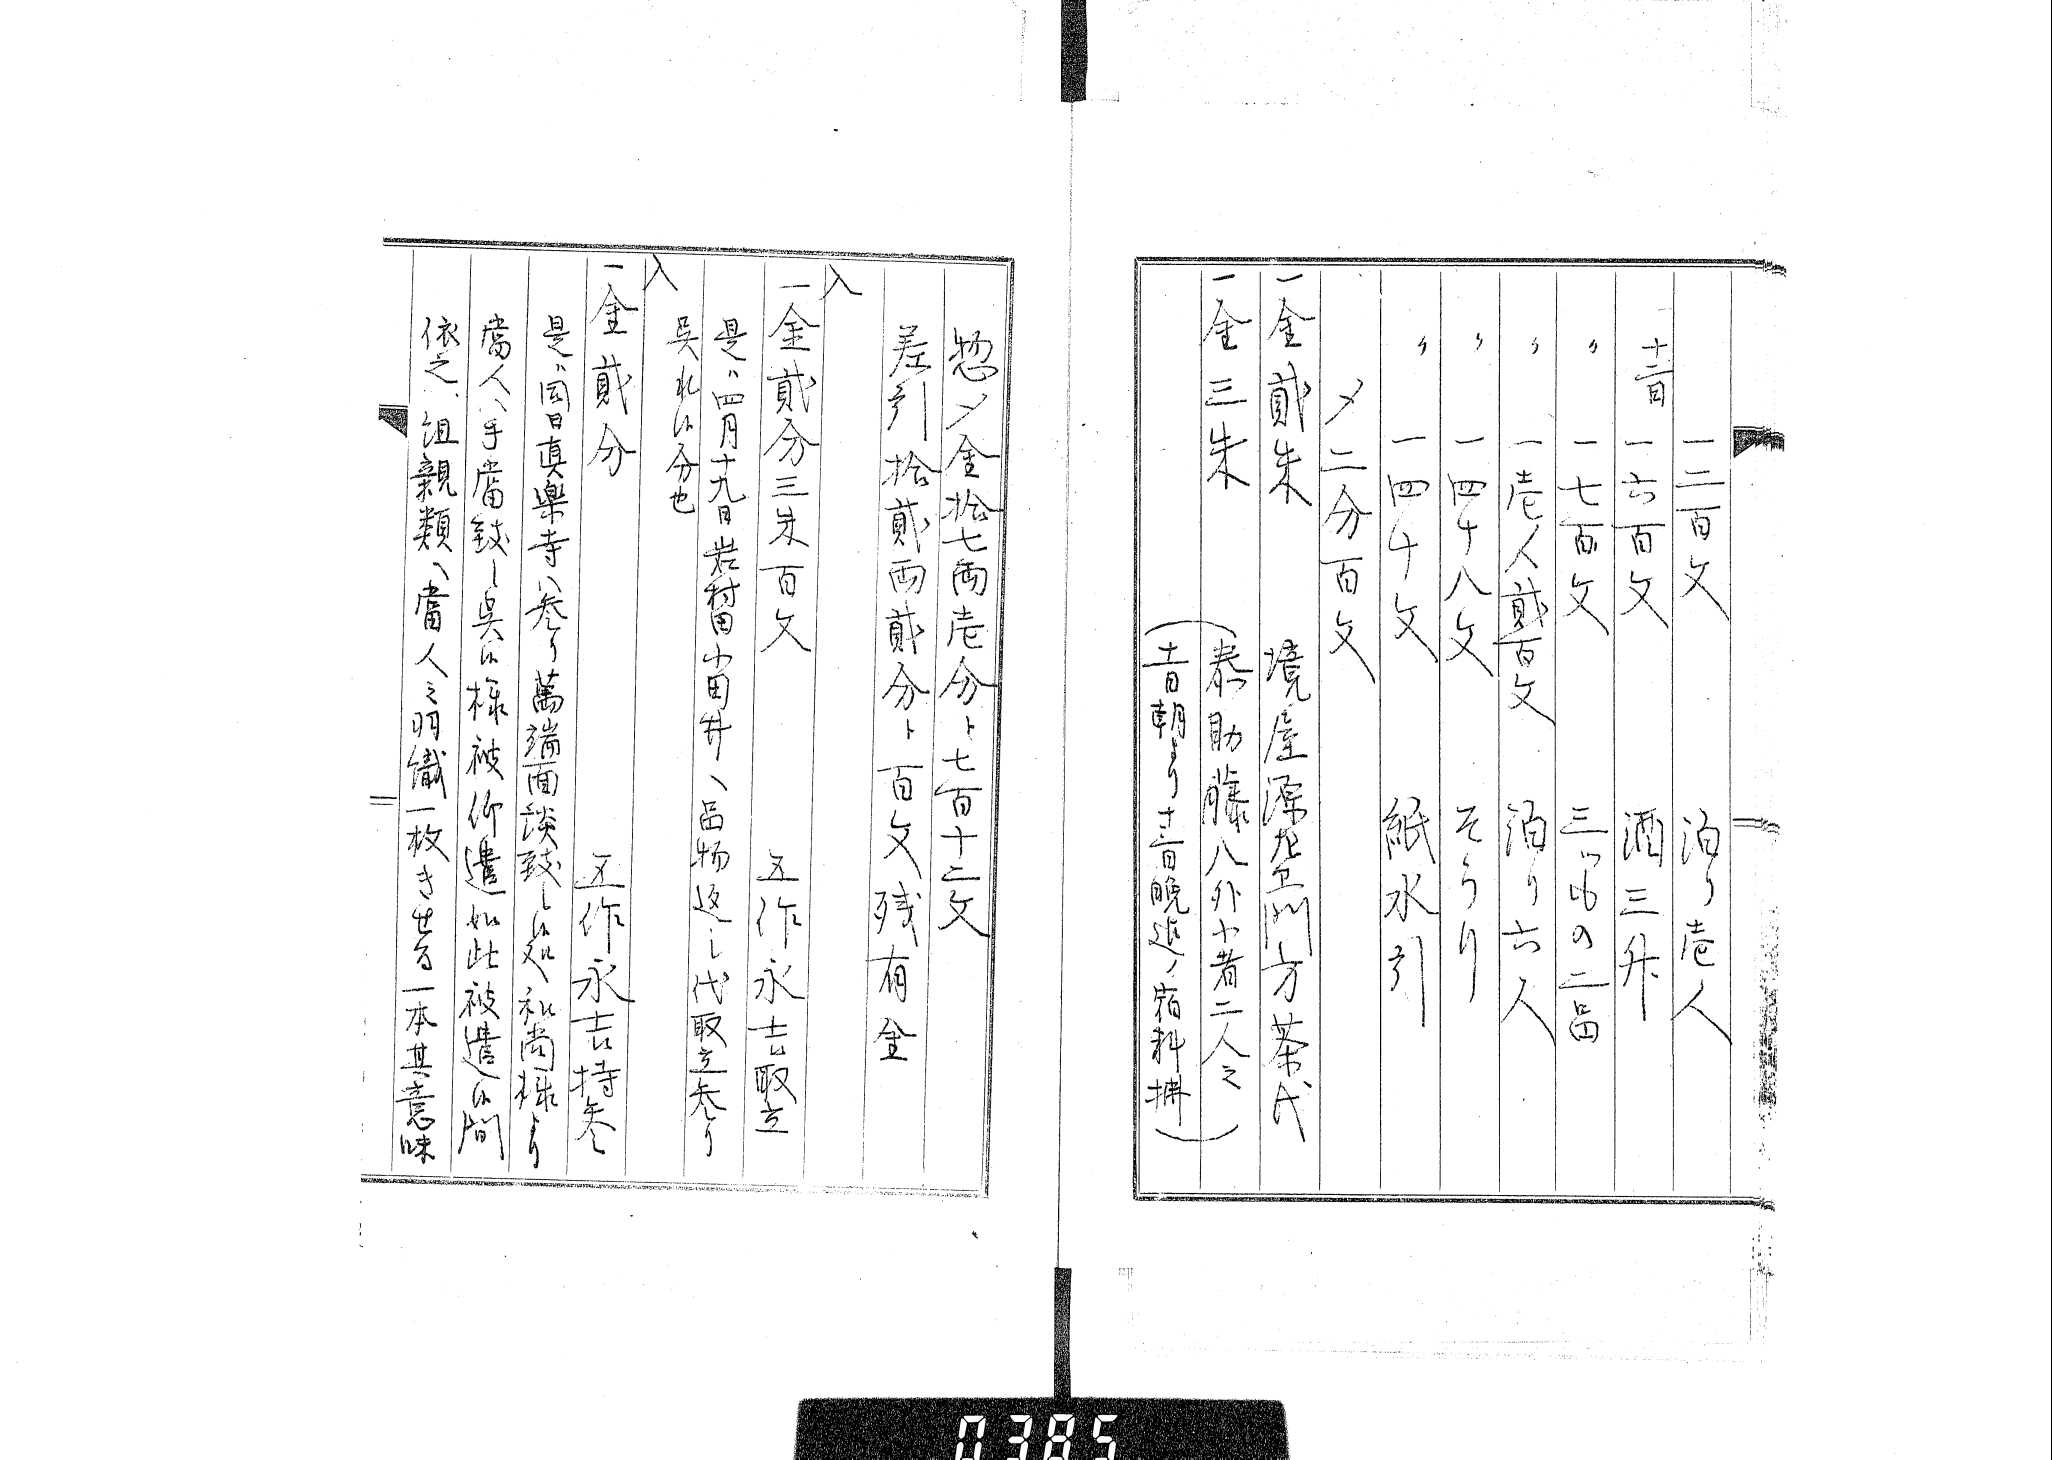 一二百文　泊り壱人
十二日　一六百文　酒三升
〃　一七百文　三ツもの二品
〃　一壱人貳百文　泊り六人
〃　一四十八文　そうり
〃　一四十文　紙水引
〆二分百文
一金貳朱　境屋源左衛門方茶代
一金三朱　（泰助藤八外小者二人之
十一日朝より十二日晩迄ノ宿料拂）
惣〆金拾七両壱分ト七百十二文
差引拾貳両貳分ト百文残有金
入
一金貳分三朱百文　五作永吉取立
是ハ四月十九日岩村田小田井へ品物返し代取立参り
呉れ候分也
入
一金貳分　五作永吉持参
是ハ同日真楽寺へ参り萬端面談致し候処和尚様より
當人へ手當致し呉候様被仰遣如此被遣候間
依之親類へ當人之羽織一枚きせる一本其意味
0385